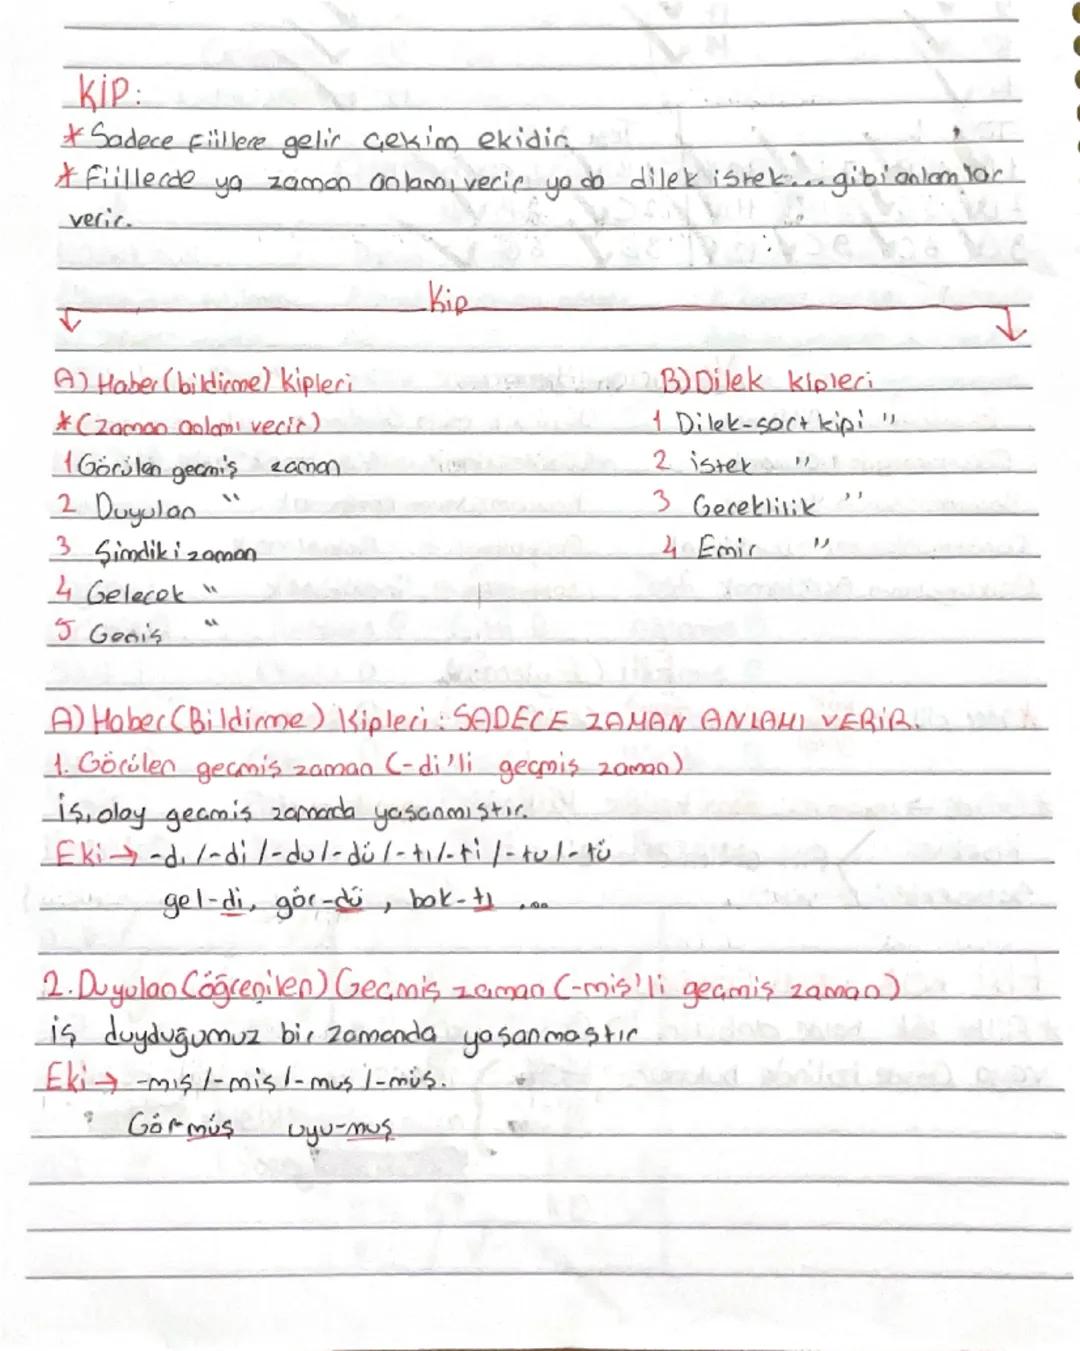 KİP:
* Sadece Fiillere gelir Çekim ekidir.
* Fiillerde ya zaman anlamı verir ya da dilek istek... gibi anlamlar
verir.
Kip
A) Haber (bildirme) kipleri B) Dilek kipleri
*(zaman anlamı verir) 1 Dilek-şart kipi "
1 Görülen geçmiş zaman 2 istek "
2 Duyulan " 3 Gereklilik "
3 Şimdiki zaman 4 Emir "
4 Gelecek "
5 Geniş "
A) Haber (Bildirme) Kipleri: SADECE ZAMAN ANLAMI VERİR.
1. Görülen geçmiş zaman (-di'li geçmiş zaman)
iş, olay geçmiş zamanda yaşanmıştır.
Eki → -dı /-di /-du /-dü /-tı /-ti /-tu /-tü
gel-di, gör-dü, bak-tı ...
2. Duyulan (öğrenilen) Geçmiş zaman (-miş'li geçmiş zaman)
iş duyduğumuz bir zamanda yaşanmıştır
Eki → -mış /-miş /-muş /-müş.
Gör-müş uyu-muş